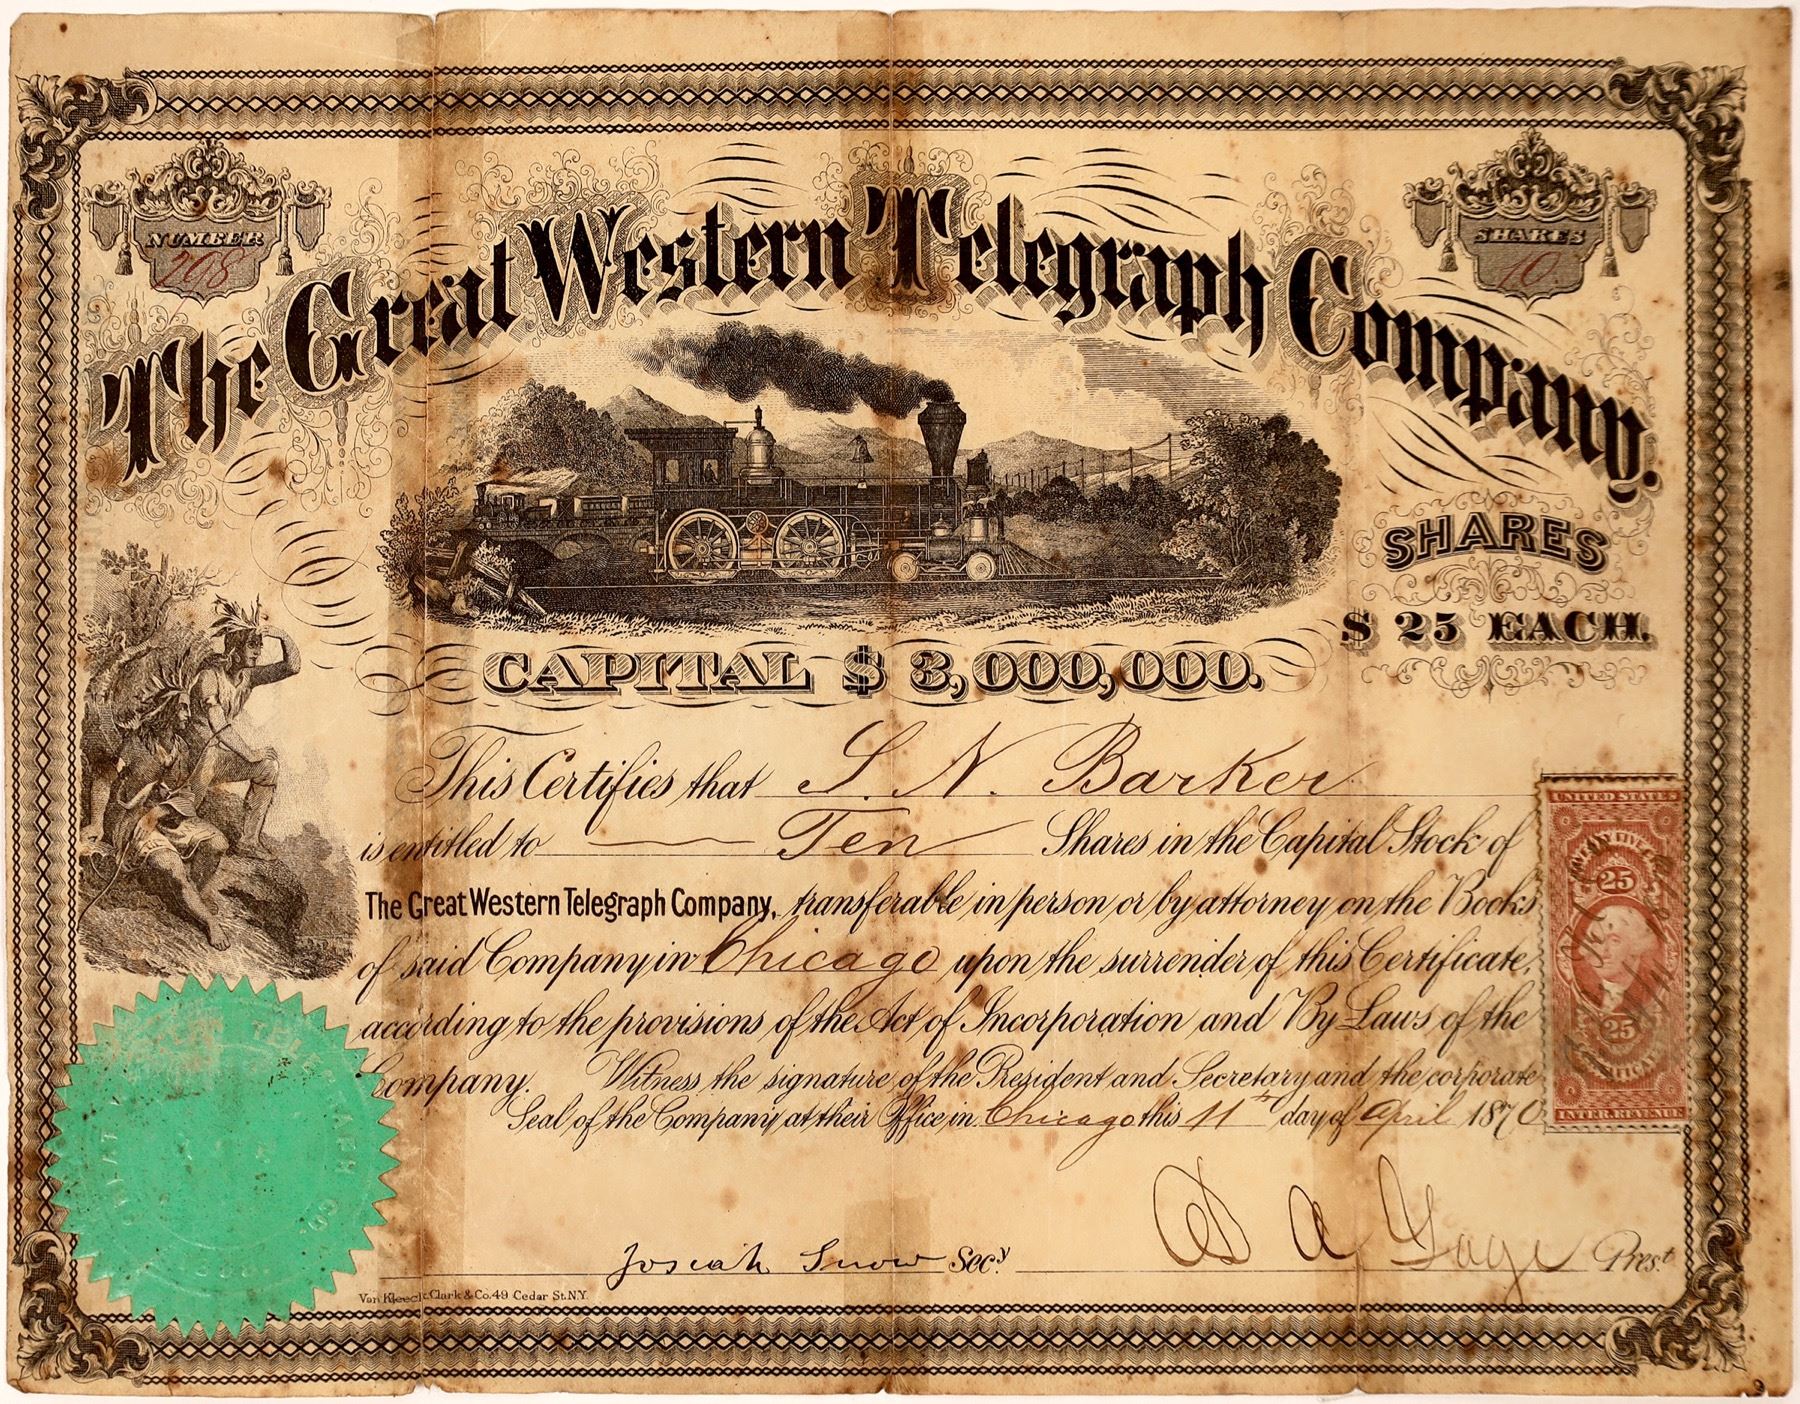 NUMBER
298
SHARES
10
The Great Western Telegraph Company.
SHARES
$ 25 EACH.
CAPITAL $ 3,000,000.
This Certifies that S. N. Barker
is entitled to Ten Shares in the Capital Stock of
The Great Western Telegraph Company, transferable in person or by attorney on the Books
of said Company in Chicago upon the surrender of this Certificate,
according to the provisions of the Act of Incorporation and By Laws of the
Company. Witness the signature of the President and Secretary and the corporate
Seal of the Company at their Office in Chicago this 11th day of April 1870
UNITED STATES
25
25
INTER. REVENUE
TELEGRAPH CO.
Josiah Snow Secy.
D A Gage Prest.
Van Kleeck, Clark & Co. 49 Cedar St. N.Y.